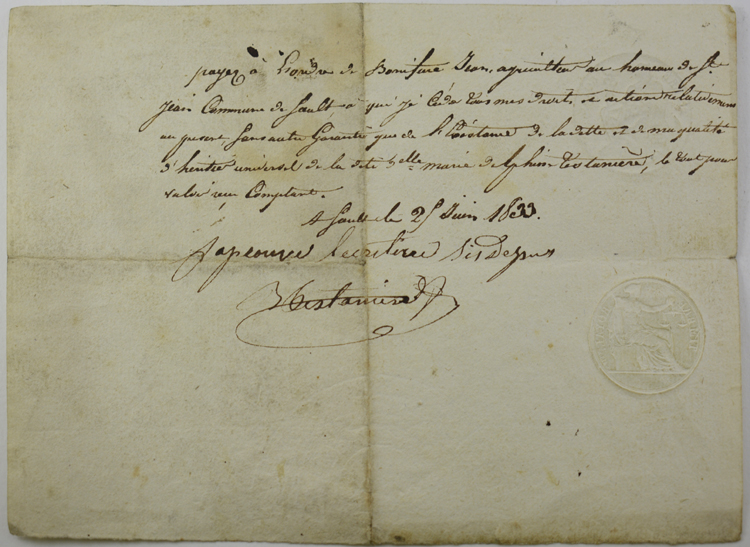 payez à L'ordre de Boniface Jean, agriculteur au hameau de St
Jean Commune de Sault, à qui je Cède tous mes droits et action relativement
au présent, Sans autre Garantie que de L'Existance de la dette et de ma qualité
d'héritié universel de la dite dlle marie delphine testanière, le tout pour
valoir reçu Comptant.
A Sault le 25 Juin 1833.
J'approuve L'écriture si dessus
Testanière